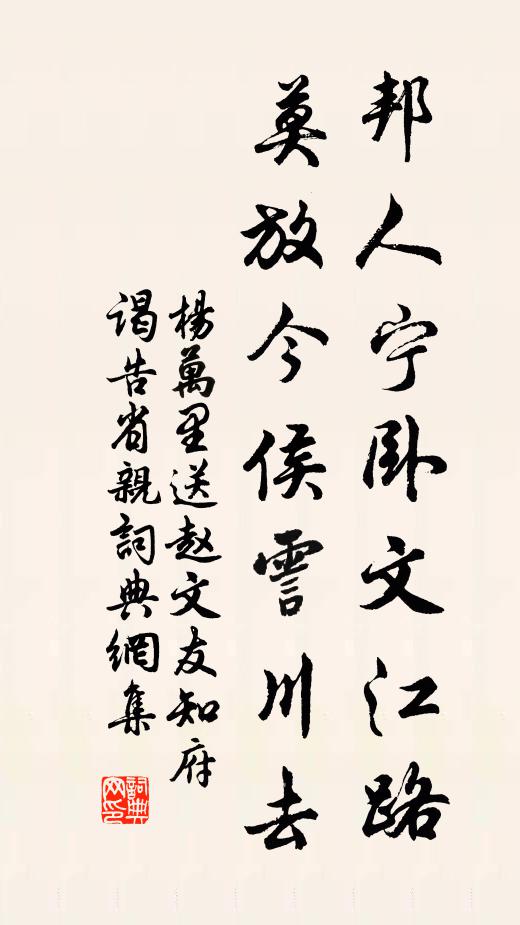 邦人宁卧文江路
莫放今侯霅川去
楊萬里送赵文友知府
谒告省親詞典網集
詞典網印